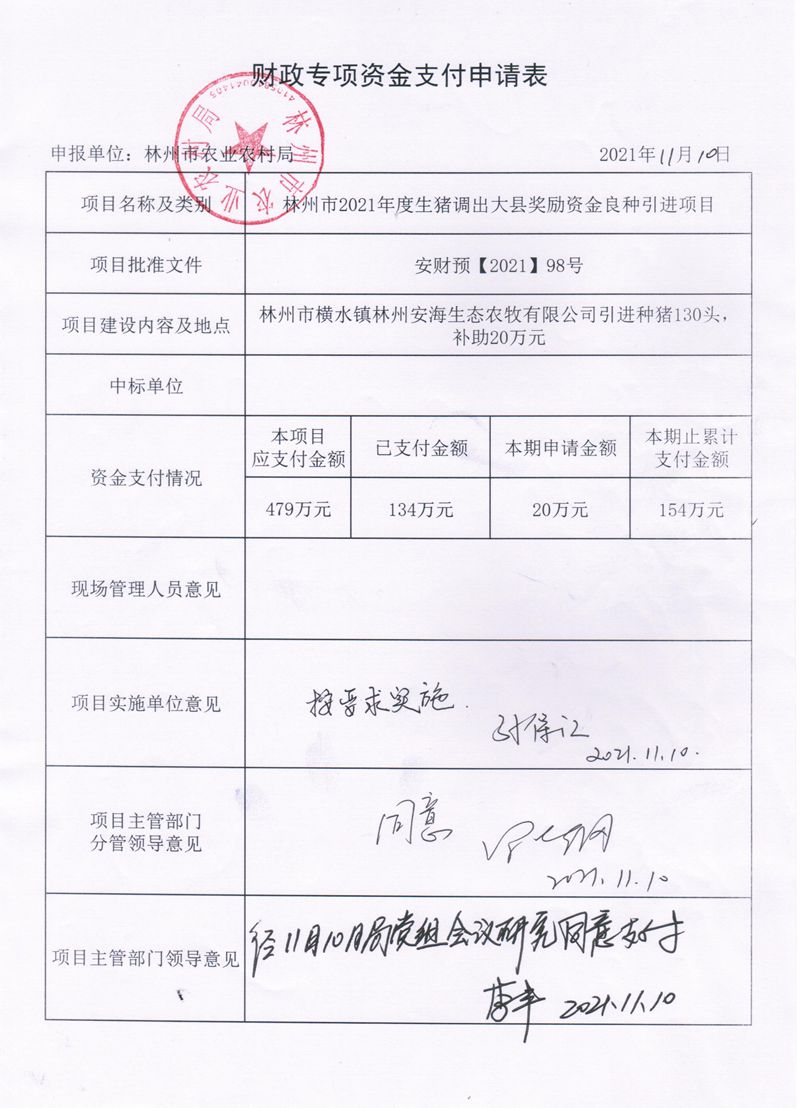 财政专项资金支付申请表
林州市农业农村局
申报单位：林州市农业农村局
2021年11月10日
项目名称及类别
林州市2021年度生猪调出大县奖励资金良种引进项目
项目批准文件
安财预【2021】98号
项目建设内容及地点
林州市横水镇林州安海生态农牧有限公司引进种猪130头，
补助20万元
中标单位
资金支付情况
本项目
应支付金额
已支付金额
本期申请金额
本期止累计
支付金额
479万元
134万元
20万元
154万元
现场管理人员意见
项目实施单位意见
按要求实施.
2021.11.10.
项目主管部门
分管领导意见
同意
2021.11.10
项目主管部门领导意见
经11月10日局党组会议研究同意支付
2021.11.10